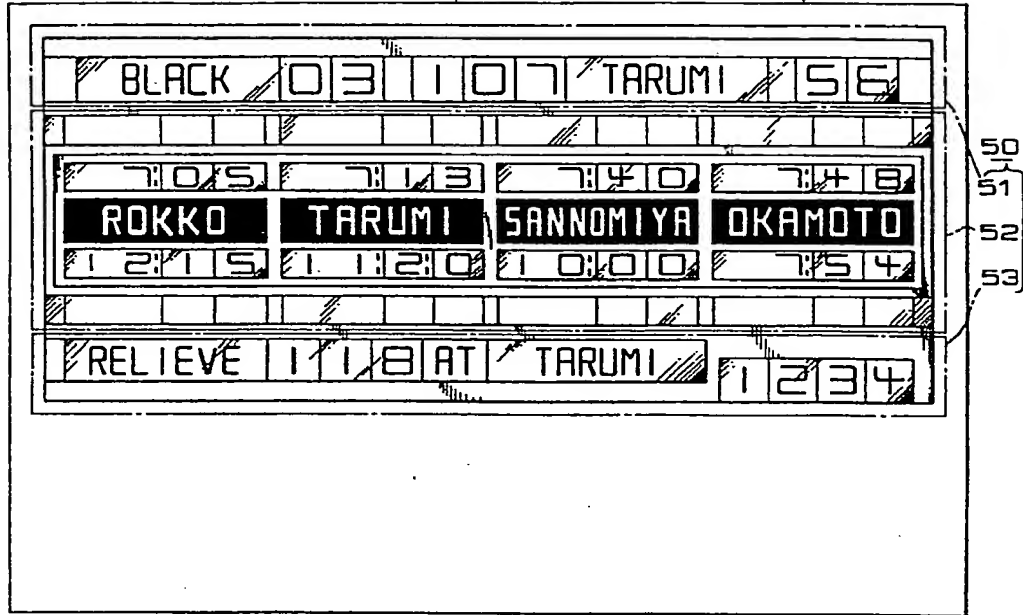 BLACK 03 107 TARUMI 56
7:05 7:13 7:40 7:48
ROKKO TARUMI SANNOMIYA OKAMOTO
12:15 11:20 10:00 7:54
RELIEVE 118 AT TARUMI 1234
50
51
52
53